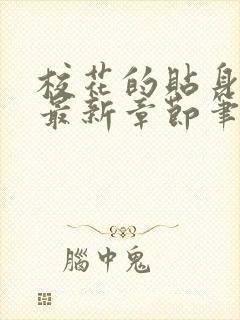 校花的貼身
最新章節筆
腦中鬼